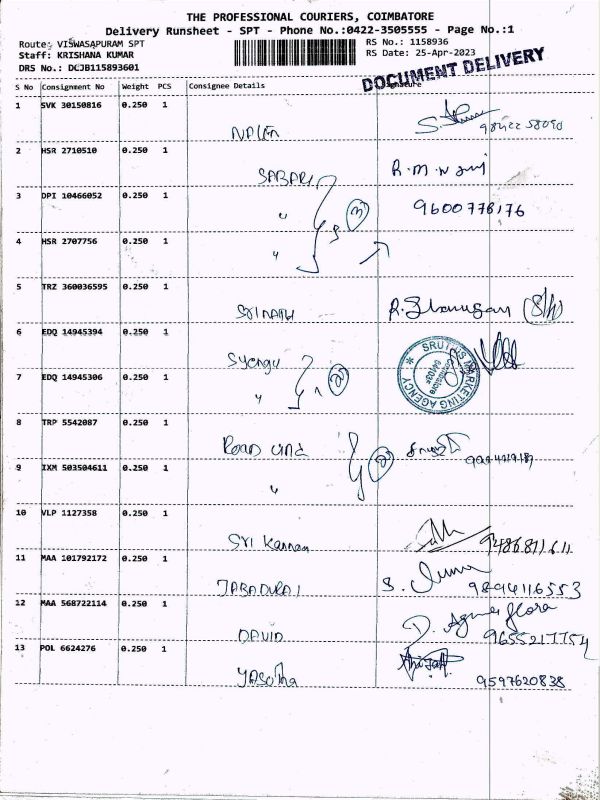 THE PROFESSIONAL COURIERS, COIMBATORE
Delivery Runsheet - SPT - Phone No.:0422-3505555 - Page No.:1
Route: VISWASAPURAM SPT
RS No.: 1158936
Staff: KRISHANA KUMAR
RS Date: 25-Apr-2023
DRS No.: DCJB115893601
DOCUMENT DELIVERY
S No Consignment No Weight PCS Consignee Details Signature
1 SVK 30150816 0.250 1
2 HSR 2710510 0.250 1
SABARI
3 DPI 10466052 0.250 1
" 3 9600778176
4 HSR 2707756 0.250 1
"
5 TRZ 360036595 0.250 1
SRINATH
6 EDQ 14945394 0.250 1
7 EDQ 14945306 0.250 1
" 2
MARKETING AGENCY
8 TRP 5542087 0.250 1
9 IXM 503504611 0.250 1
" 2
10 VLP 1127358 0.250 1
Sri Kannan 9486811611
11 MAA 101792172 0.250 1
JABADURAI 9894116553
12 MAA 568722114 0.250 1
DAVID D. Agnes flora 9655217754
13 POL 6624276 0.250 1
YASOTHA 9597620838